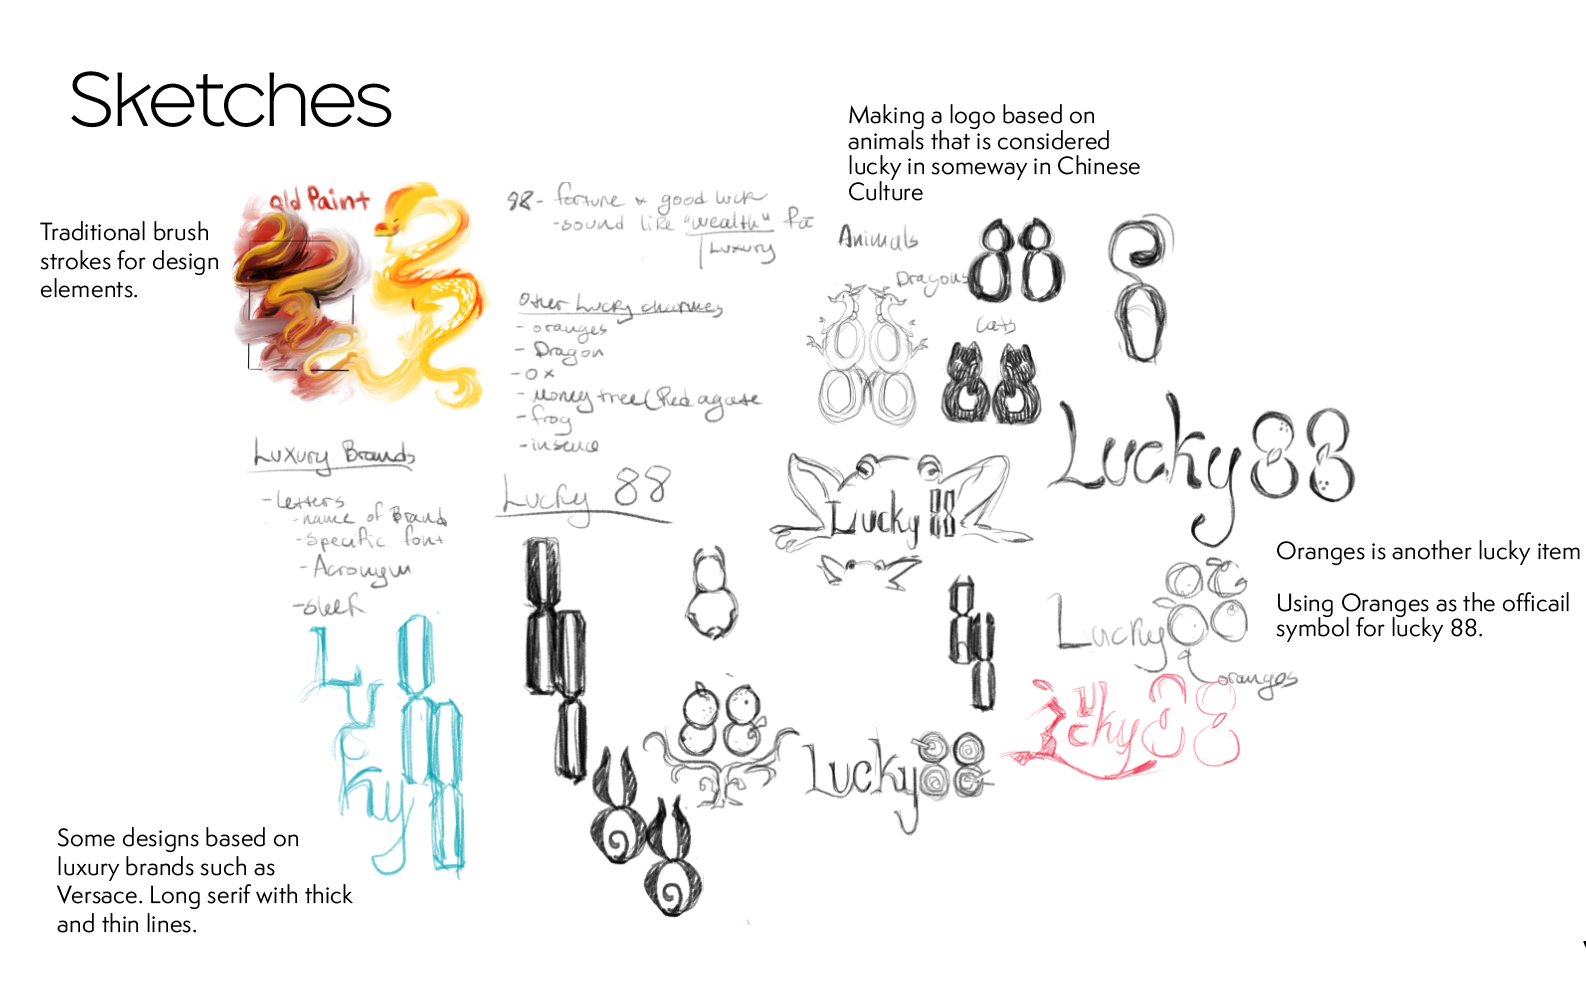 Sketches
Making a logo based on
animals that is considered
lucky in someway in Chinese
Culture
Traditional brush
strokes for design
elements.
old Paint
88- fortune & good luck
-sound like "wealth" fa
Luxury
Animals
Dragons
Cats
Other Lucky charmes
- oranges
- Dragon
- ox
- money tree (Red agate
- frog
- insence
Luxury Brands
- letters
- name of Brand
- specific font
- Acronym
- sleek
Lucky 88
Lucky 88
Lucky 88
Oranges is another lucky item
Using Oranges as the officail
symbol for lucky 88.
Lucky
oranges
Lucky 88
Lucky 88
Lucky
Some designs based on
luxury brands such as
Versace. Long serif with thick
and thin lines.